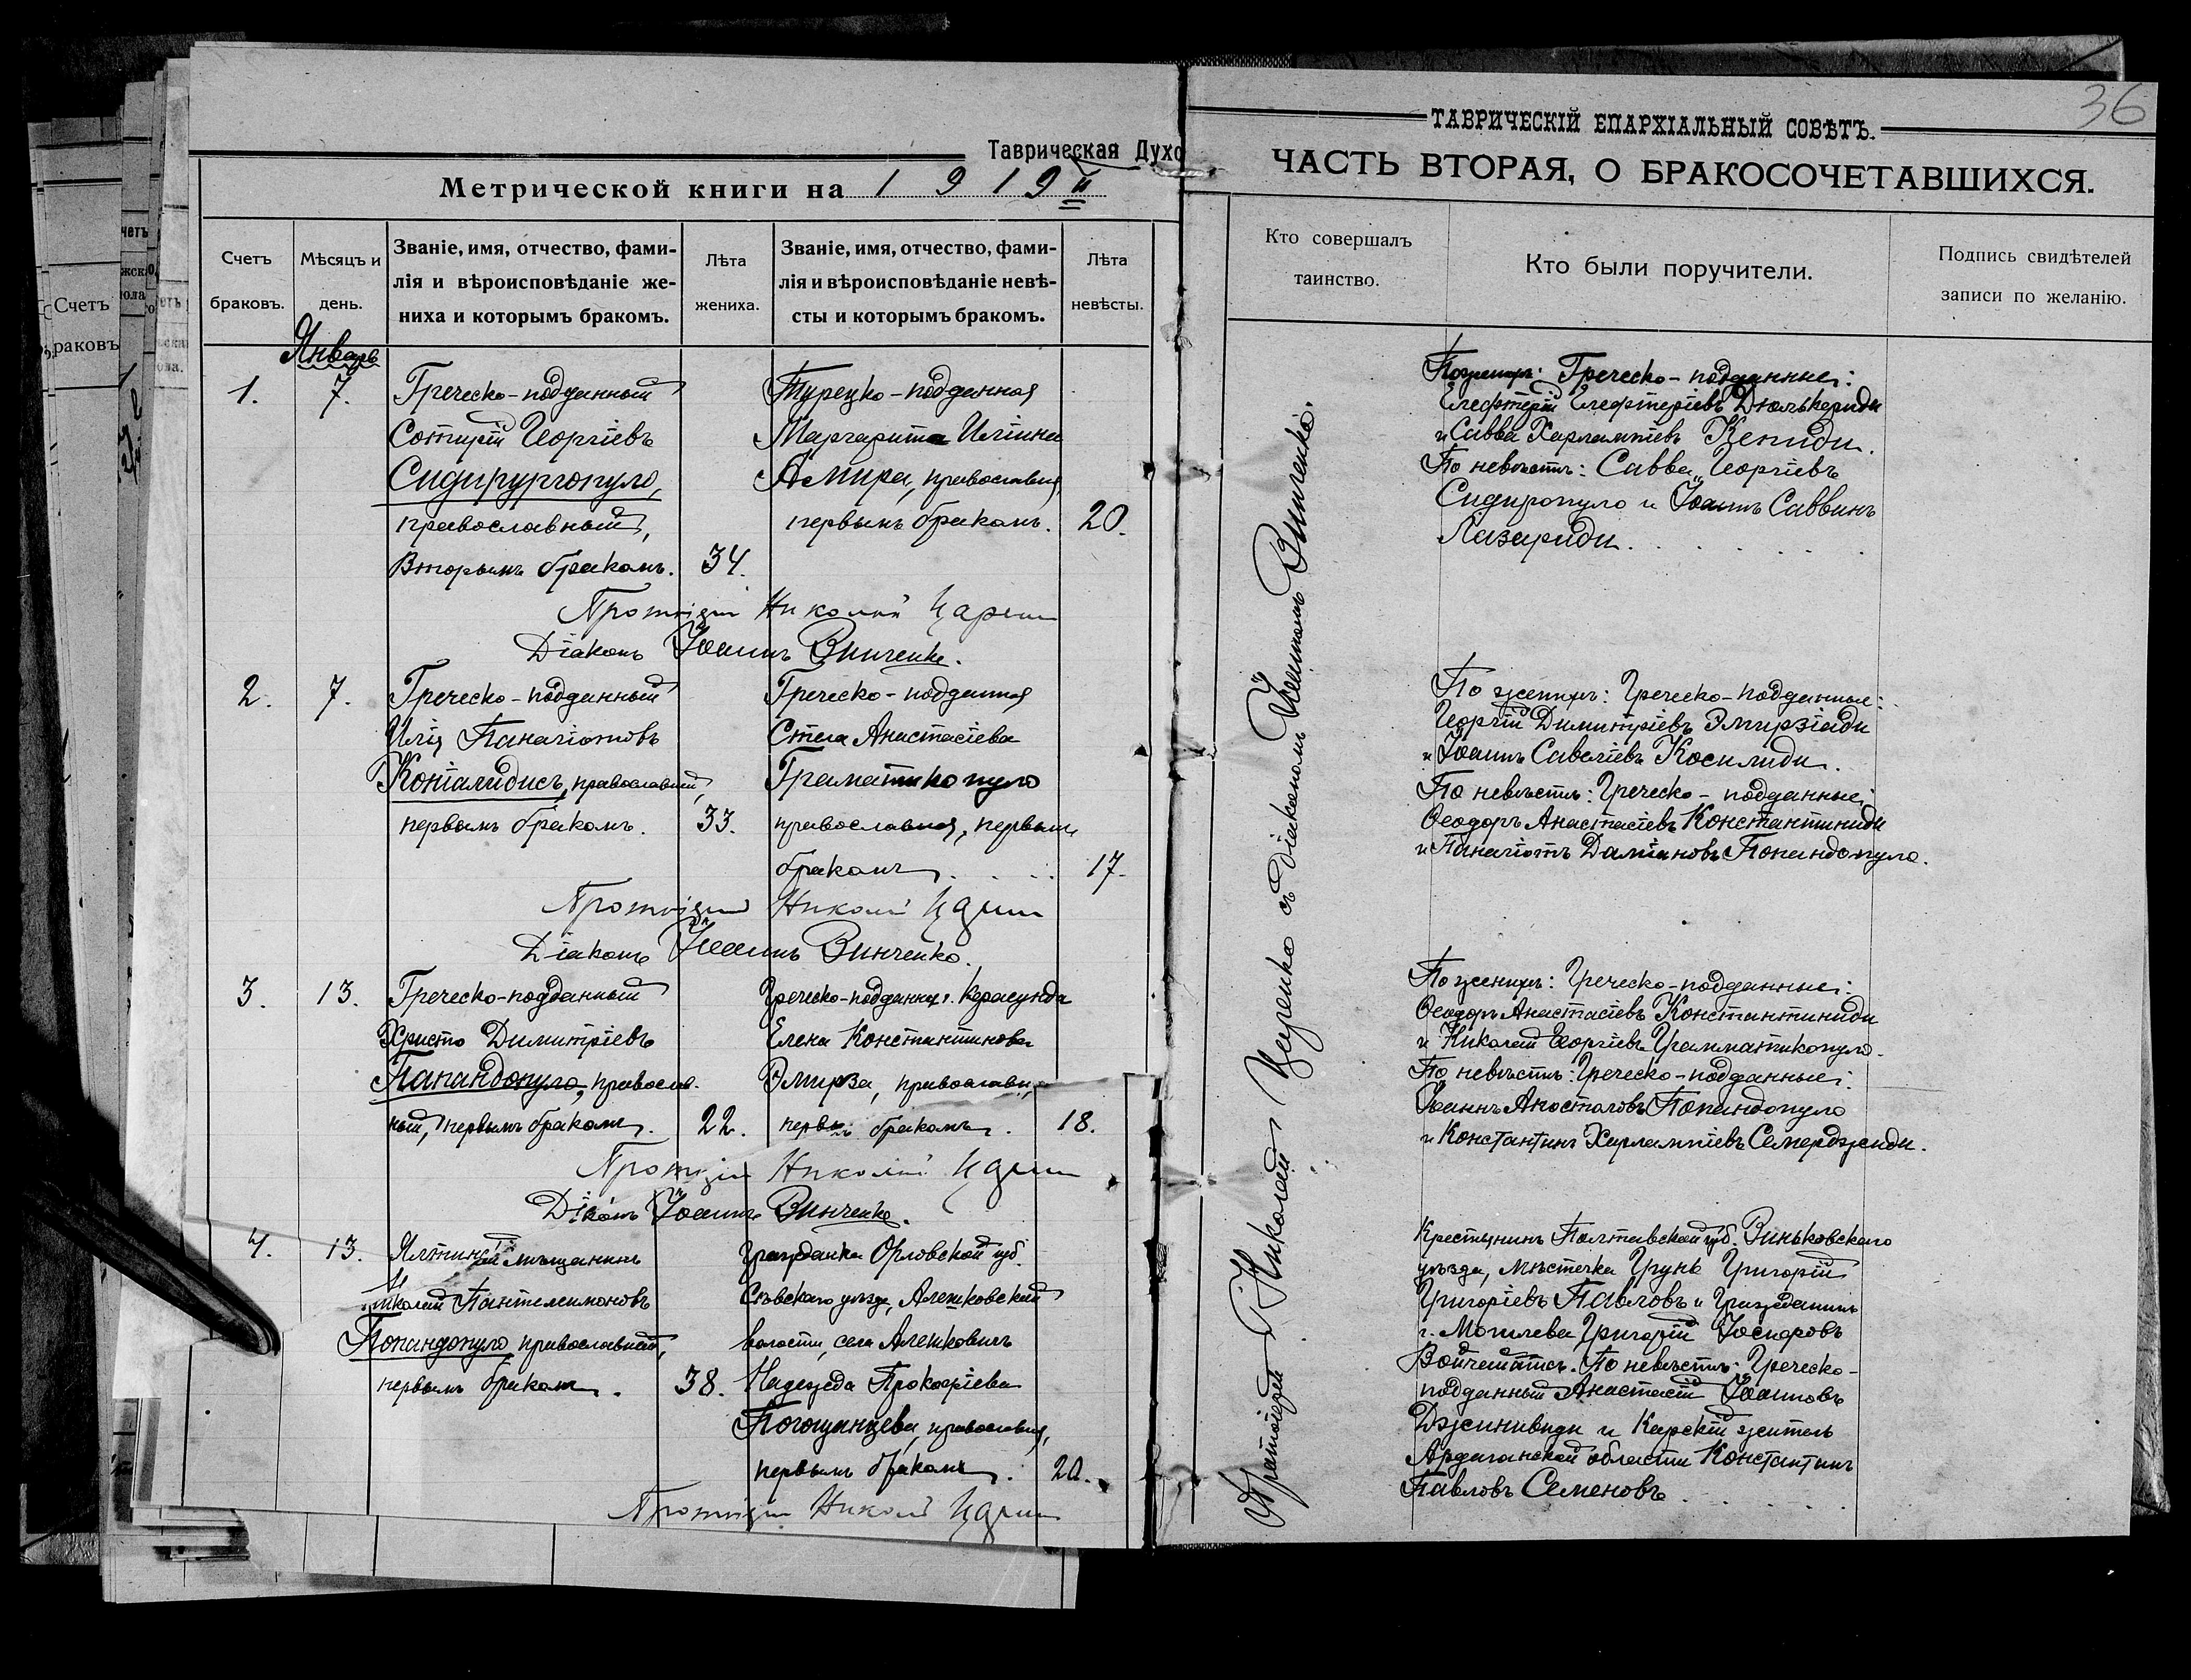 36
Таврическая Духо
ТАВРИЧЕСКІЙ ЕПАРХІАЛЬНЫЙ СОВѢТЪ.
Метрической книги на 1919 й
ЧАСТЬ ВТОРАЯ, О БРАКОСОЧЕТАВШИХСЯ.
Счетъ браковъ.
Мѣсяцъ и день.
Званіе, имя, отчество, фами-
лія и вѣроисповѣданіе же-
ниха и которымъ бракомъ.
Лѣта жениха.
Званіе, имя, отчество, фами-
лія и вѣроисповѣданіе невѣ-
сты и которымъ бракомъ.
Лѣта невѣсты.
Кто совершалъ таинство.
Кто были поручители.
Подпись свидѣтелей
записи по желанію.
Январь
1.
7.
Греческо-подданный
Сотирій Георгіевъ
Сидирургопуло,
православный,
вторымъ бракомъ.
34.
Турецко-подданная
Маргарита Иліина
Амира, православная,
первымъ бракомъ.
20.
Протоіерей Николай
Діаконъ Іоаннъ Винченко.
По женихѣ: Греческо-подданные:
Елефтерій Елефтеріевъ Дюлькериди
и Савва Харлампіевъ Кепиди.
По невѣстѣ: Савва Георгіевъ
Сидиропуло и Іоаннъ Саввинъ
Лазариди.
2.
7.
Греческо-подданный
Илія Панагіотовъ
Коніалидисъ, православный,
первымъ бракомъ.
33.
Греческо-подданная
Стела Анастасіева
Граматикопуло
православная, первымъ
бракомъ
17.
Протоіерей Николай
Діаконъ Іоаннъ Винченко.
По женихѣ: Греческо-подданные:
Георгій Димитріевъ Эмирзіади
и Іоаннъ Савеліевъ Косилиди.
По невѣстѣ: Греческо-подданные:
Ѳеодоръ Анастасіевъ Константиниди
и Панагіотъ Даміановъ Попандопуло.
3.
13.
Греческо-подданный
Христо Димитріевъ
Папандопуло, православ-
ный, первымъ бракомъ.
22.
Греческо-подданная г. Керасунда
Елена Константинова
Эмирза, православн.,
первымъ бракомъ.
18.
Протоіерей Николай
Діаконъ Іоаннъ Винченко.
По женихѣ: Греческо-подданные:
Ѳеодоръ Анастасіевъ Константиниди
и Николай Георгіевъ Грамматикопуло.
По невѣстѣ: Греческо-подданные:
Іоаннъ Апостоловъ Попандопуло
и Константинъ Харлампіевъ Семерджиди.
4.
13.
Ялтинскій мѣщанинъ
Николай Пантелеимоновъ
Попандопуло, православный,
первымъ бракомъ.
38.
Гражданка Орловской губ.
Сѣвскаго уѣзда, Алешковской
волости, села Алешковичъ
Надежда Прокофіева
Погощанцева, православная,
первымъ бракомъ.
20.
Протоіерей Николай
Крестьянинъ Полтавской губ. Зиньковскаго
уѣзда, мѣстечка Грунь Григорій
Григоріевъ Павловъ и Гражданинъ
г. Могилева Григорій Іосифовъ
По невѣстѣ: Греческо-
подданный Анастасій Іоанновъ
Джинивиди и Карскій житель
Ардаганской области Константинъ
Павловъ Семеновъ
Протоіерей Николай Царенко съ Діакономъ Іоанномъ Винченко.
Счетъ
раковъ